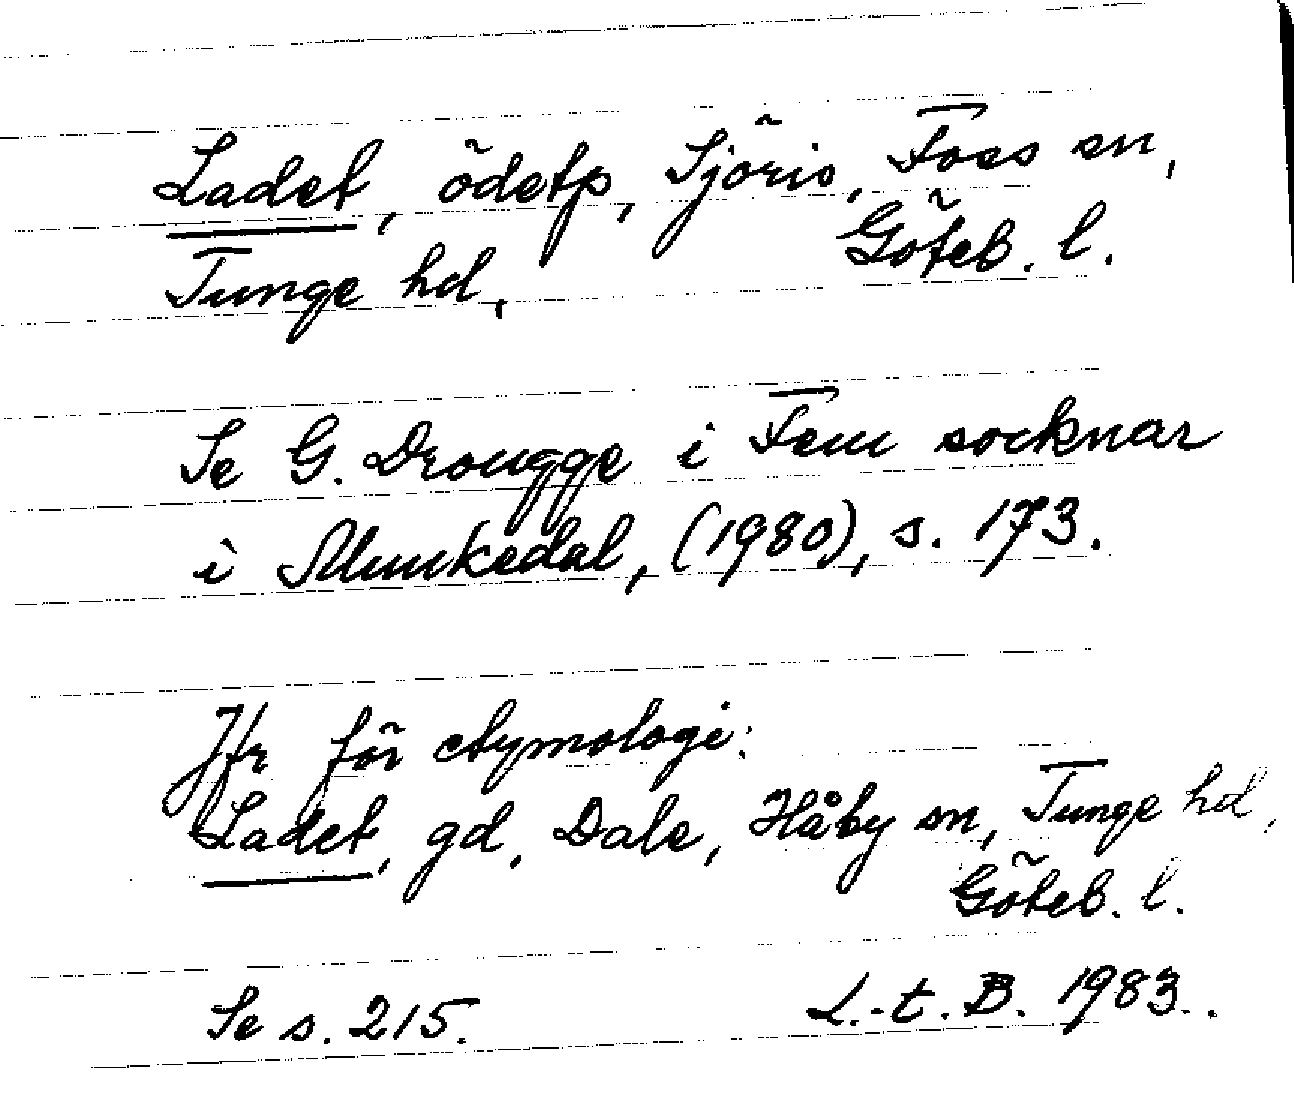 Ladet, ödetp, Sjöris, Foss sn,
Tunge hd, Göteb. l.
Se G. Drougge i Fem socknar
i Munkedal, (1980), s. 173.
Jfr för etymologi:
Ladet, gd, Dale, Håby sn, Tunge hd,
Göteb. l.
Se s. 215. L.-t. B. 1983.